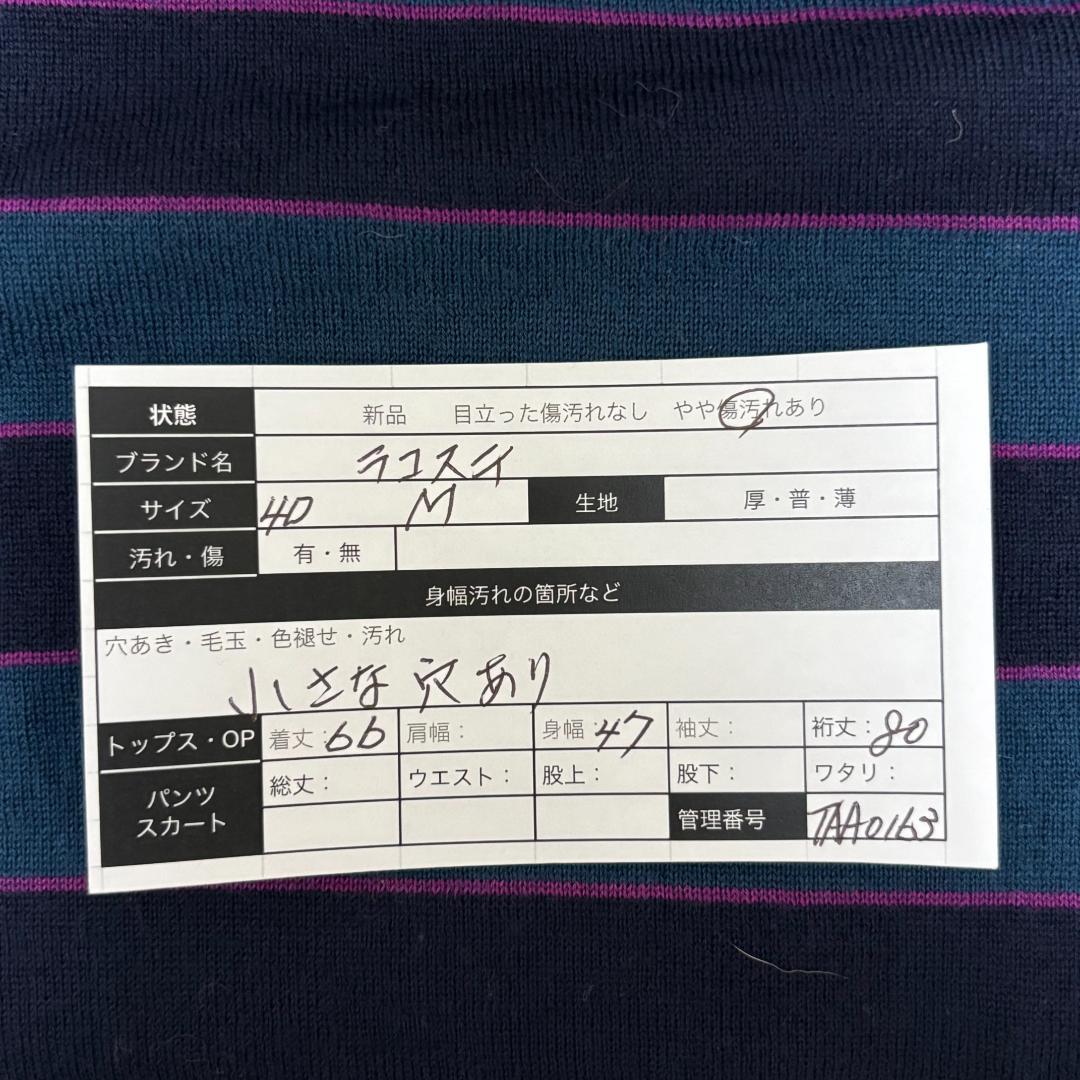 状態 新品 目立った傷汚れなし やや傷汚れあり
ブランド名 ラコステ
サイズ 40 M 生地 厚・普・薄
汚れ・傷 有・無
身幅汚れの箇所など
穴あき・毛玉・色褪せ・汚れ
小さな穴あり
トップス・OP 着丈:66 肩幅: 身幅:47 袖丈: 裄丈:80
パンツ スカート 総丈: ウエスト: 股上: 股下: ワタリ:
管理番号 TAA0163